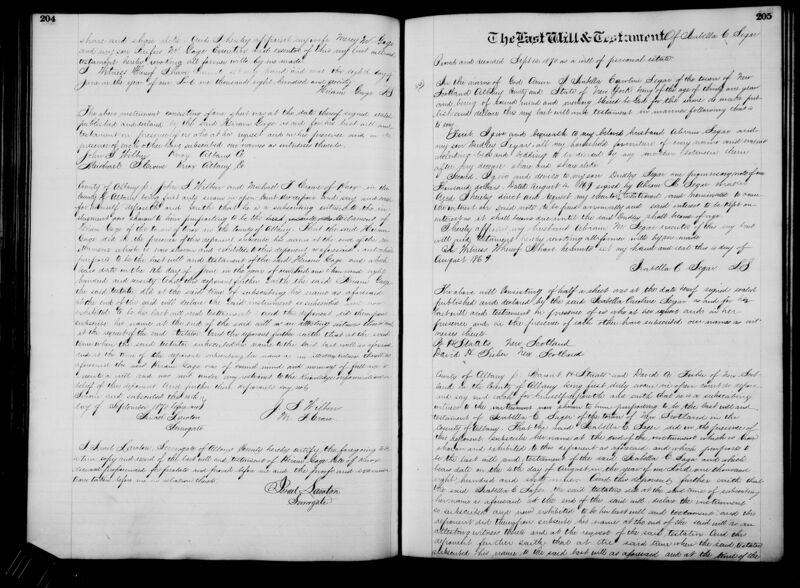 204
share and share alike And I hereby appoint my wife Mercy W. Gage
and my son Rufus W. Gage Executrix and executor of this my last will and
testament hereby revoking all former wills by me made
I Witness Whereof I have hereunto set my hand and seal the eighth day of
June in the year of our Lord one thousand eight hundred and seventy
Hiram Gage LS
The above instrument consisting of one sheet was at the date thereof signed sealed
published and declared by the said Hiram Gage as and for his last will and
testament in presence of us who at his request and in his presence and in the
presence of each other have subscribed our names as witnesses thereto.
John S Wilbur Knox Albany Co
Michael F Crane Knox Albany Co
County of Albany ss John S Wilbur and Michael F Crane of Knox in the
County of Albany being duly sworn in open Court do depose and say each
for himself deposeth and saith that he is a subscribing witness to the in-
strument now shown to him purporting to be the last will and testament of
Hiram Gage of the town of Knox in the County of Albany That the said Hiram
Gage did in the presence of this deponent subscribe his name at the end of the in-
strument which is now shown and exhibited to this deponent as aforesaid and which
purports to be the last will and testament of the said Hiram Gage and which
bears date on the 8th day of June in the year of our Lord one thousand eight
hundred and seventy And this deponent further saith the said Hiram Gage
the said testator did at the said time of subscribing his name as aforesaid
at the end of the said will declare the said instrument so subscribed and now
exhibited to be his last will and testament and this deponent did thereupon
subscribe his name at the end of the said will as an attesting witness thereto and
at the request of the said testator And this deponent further saith that at the said
time when the said testator subscribed his name to the said last will as aforesaid
and at the time of the deponent subscribing his name as an attesting witness thereto as
aforesaid the said Hiram Gage was of sound mind and memory of full age to
execute a will and was not under any restraint to the knowledge information or
belief of this deponent And further these deponents say not
Sworn and subscribed this 12th
day of September 1870 before me
Israel Lawton
Surrogate
J. S Wilbur
M. F Crane
I Israel Lawton, Surrogate of Albany County hereby certify the foregoing to be
a true copy and record of the last will and testament of Hiram Gage late of Knox
deceased
Israel Lawton
Surrogate
205
The Last Will & Testament Of Isabella C. Segar
Proved and recorded Sept 1870 as a will of personal estate
In the name of God Amen I Isabella Caroline Segar of the town of New
Scotland Albany County and State of New York being of the age of thirty one years
and being of sound mind and making thanks to God for the same do make pub-
lish and declare this my last will and testament in manner following that is
to say
First I give and bequeath to my beloved husband Abram Segar and
my son Dudley Segar all my household furniture of every name and nature
share and share alike
Second I give and devise to my son Dudley Segar one promissory note of one
thousand dollars dated August 1869 signed by Abram Segar
And I hereby direct and request my executor
the interest on said note to be paid annually and said interest to be kept on
interest as it shall become due until the said Dudley shall become of age
I hereby appoint my husband Abram M. Segar executor of this my last
will and testament hereby revoking all former wills by me made
In Witness Whereof I have hereunto set my hand and seal this day of
August 1869
Isabella C Segar LS
The above will consisting of half a sheet was at the date thereof signed sealed
published and declared by the said Isabella Caroline Segar as and for her
last will and testament in presence of us who at her request and in her
presence and in the presence of each other have subscribed our names as wit-
nesses thereto
New Scotland
David A Fisher New Scotland
County of Albany ss and David A Fisher of New Scot-
land in the County of Albany being first duly sworn in open court do depose
and say each for himself deposeth and saith that he is a subscribing
witness to the instrument now shown to him purporting to be the last will and
testament of Isabella C Segar of the town of New Scotland in the
County of Albany That the said Isabella C Segar did in the presence of
this deponent subscribe her name at the end of the instrument which is now
shown and exhibited to this deponent as aforesaid and which purports to
be the last will and testament of the said Isabella C Segar and which
bears date on the day of August in the year of our Lord one thousand
eight hundred and sixty nine And this deponent further saith that
the said Isabella C Segar the said testatrix did at the said time of subscribing
her name as aforesaid at the end of the said will declare the instrument
so subscribed and now exhibited to be her last will and testament and this
deponent did thereupon subscribe his name at the end of the said will as an
attesting witness thereto and at the request of the said testatrix And this
deponent further saith that at the said time when the said testatrix
subscribed her name to the said last will as aforesaid and at the time of the